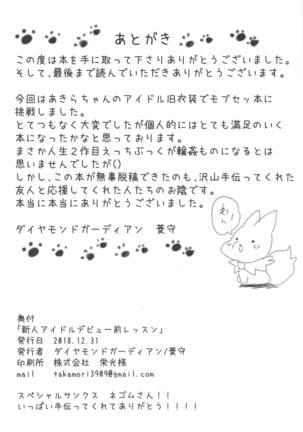 あとがき
この度は本を手に取って下さりありがとうございました。
そして、最後まで読んでいただきありがとうございます。
今回はあきらちゃんのアイドル旧衣装でモブセッ本に
挑戦しました。
とてつもなく大変でしたが個人的にはとても満足のいく
本になったかなと思っております。
まさか人生2作目えっちぶっくが輪姦ものになるとは
思いませんでしたが()
しかし、この本が無事脱稿できたのも、沢山手伝ってくれた
友人と応援してくれた人たちのお陰です。
本当に本当にありがとうございました。
わーん
ダイヤモンドガーディアン 蒼守
奥付
「新人アイドルデビュー前レッスン」
発行日 2018.12.31
発行者 ダイヤモンドガーディアン/蒼守
印刷所 株式会社 栄光様
mail takamori3909@gmail.com
スペシャルサンクス ネゴムさん!!
いっぱい手伝ってくれてありがとう!!!!